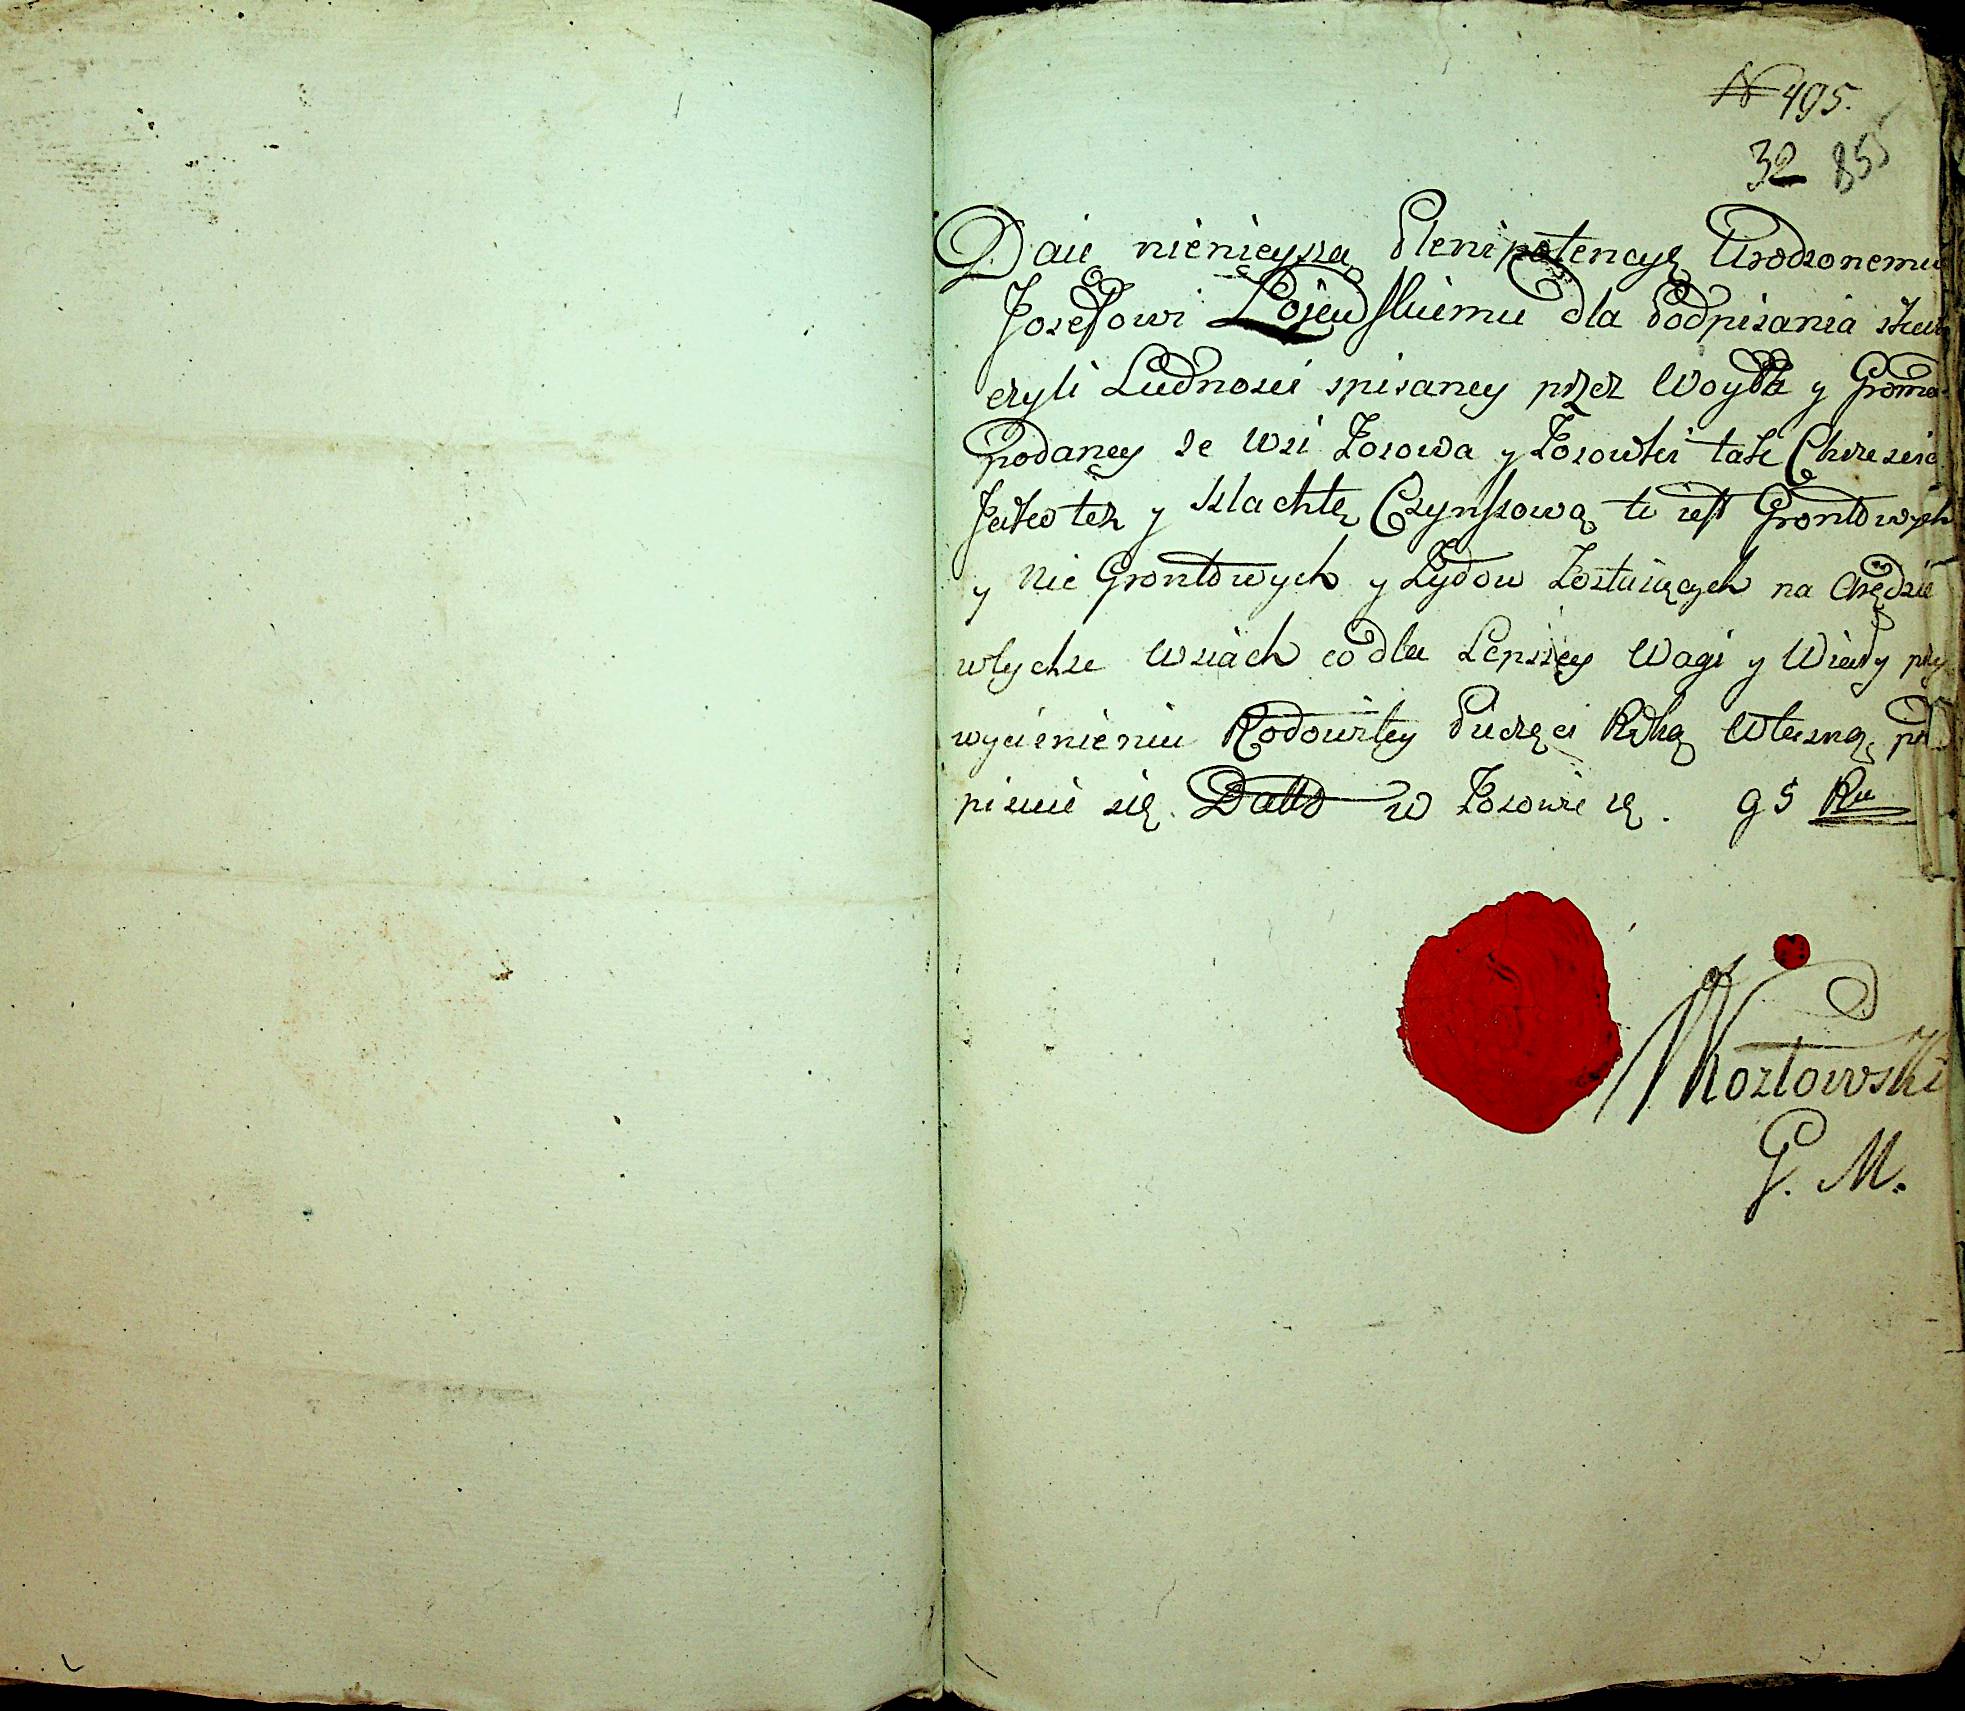 N 495.
32 855
Daię nienieyszą Plenipotencyę Urodzonemu
Jozefowi Łojewskiemu dla Podpisania
czyli Ludnosci spisaney przez Woyta y Groma
podaney ze Wsi Zozowa y Zozowki tak Chrzescia
Jako też y Szlachtę Czynszową to iest Grontowych
y Nie Grontowych y Żydow Zostaiących na Arędzie
wtychże Wsiach co dla Lepszey Wagi y Wiary przy
wycisnieniu Rodowitey Pieczęci Ręką Własną pod
pisuię się. Datto w Zozowie 95 Ru
Kozłowski
G. M.